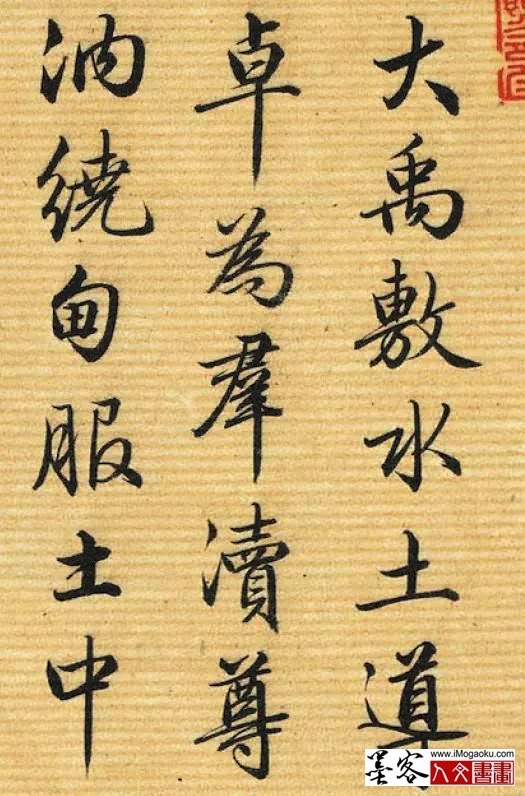 大禹敷水土道
卓為羣瀆尊
汭繞甸服土中
www.iMogaoku.com
墨客
人文書畫